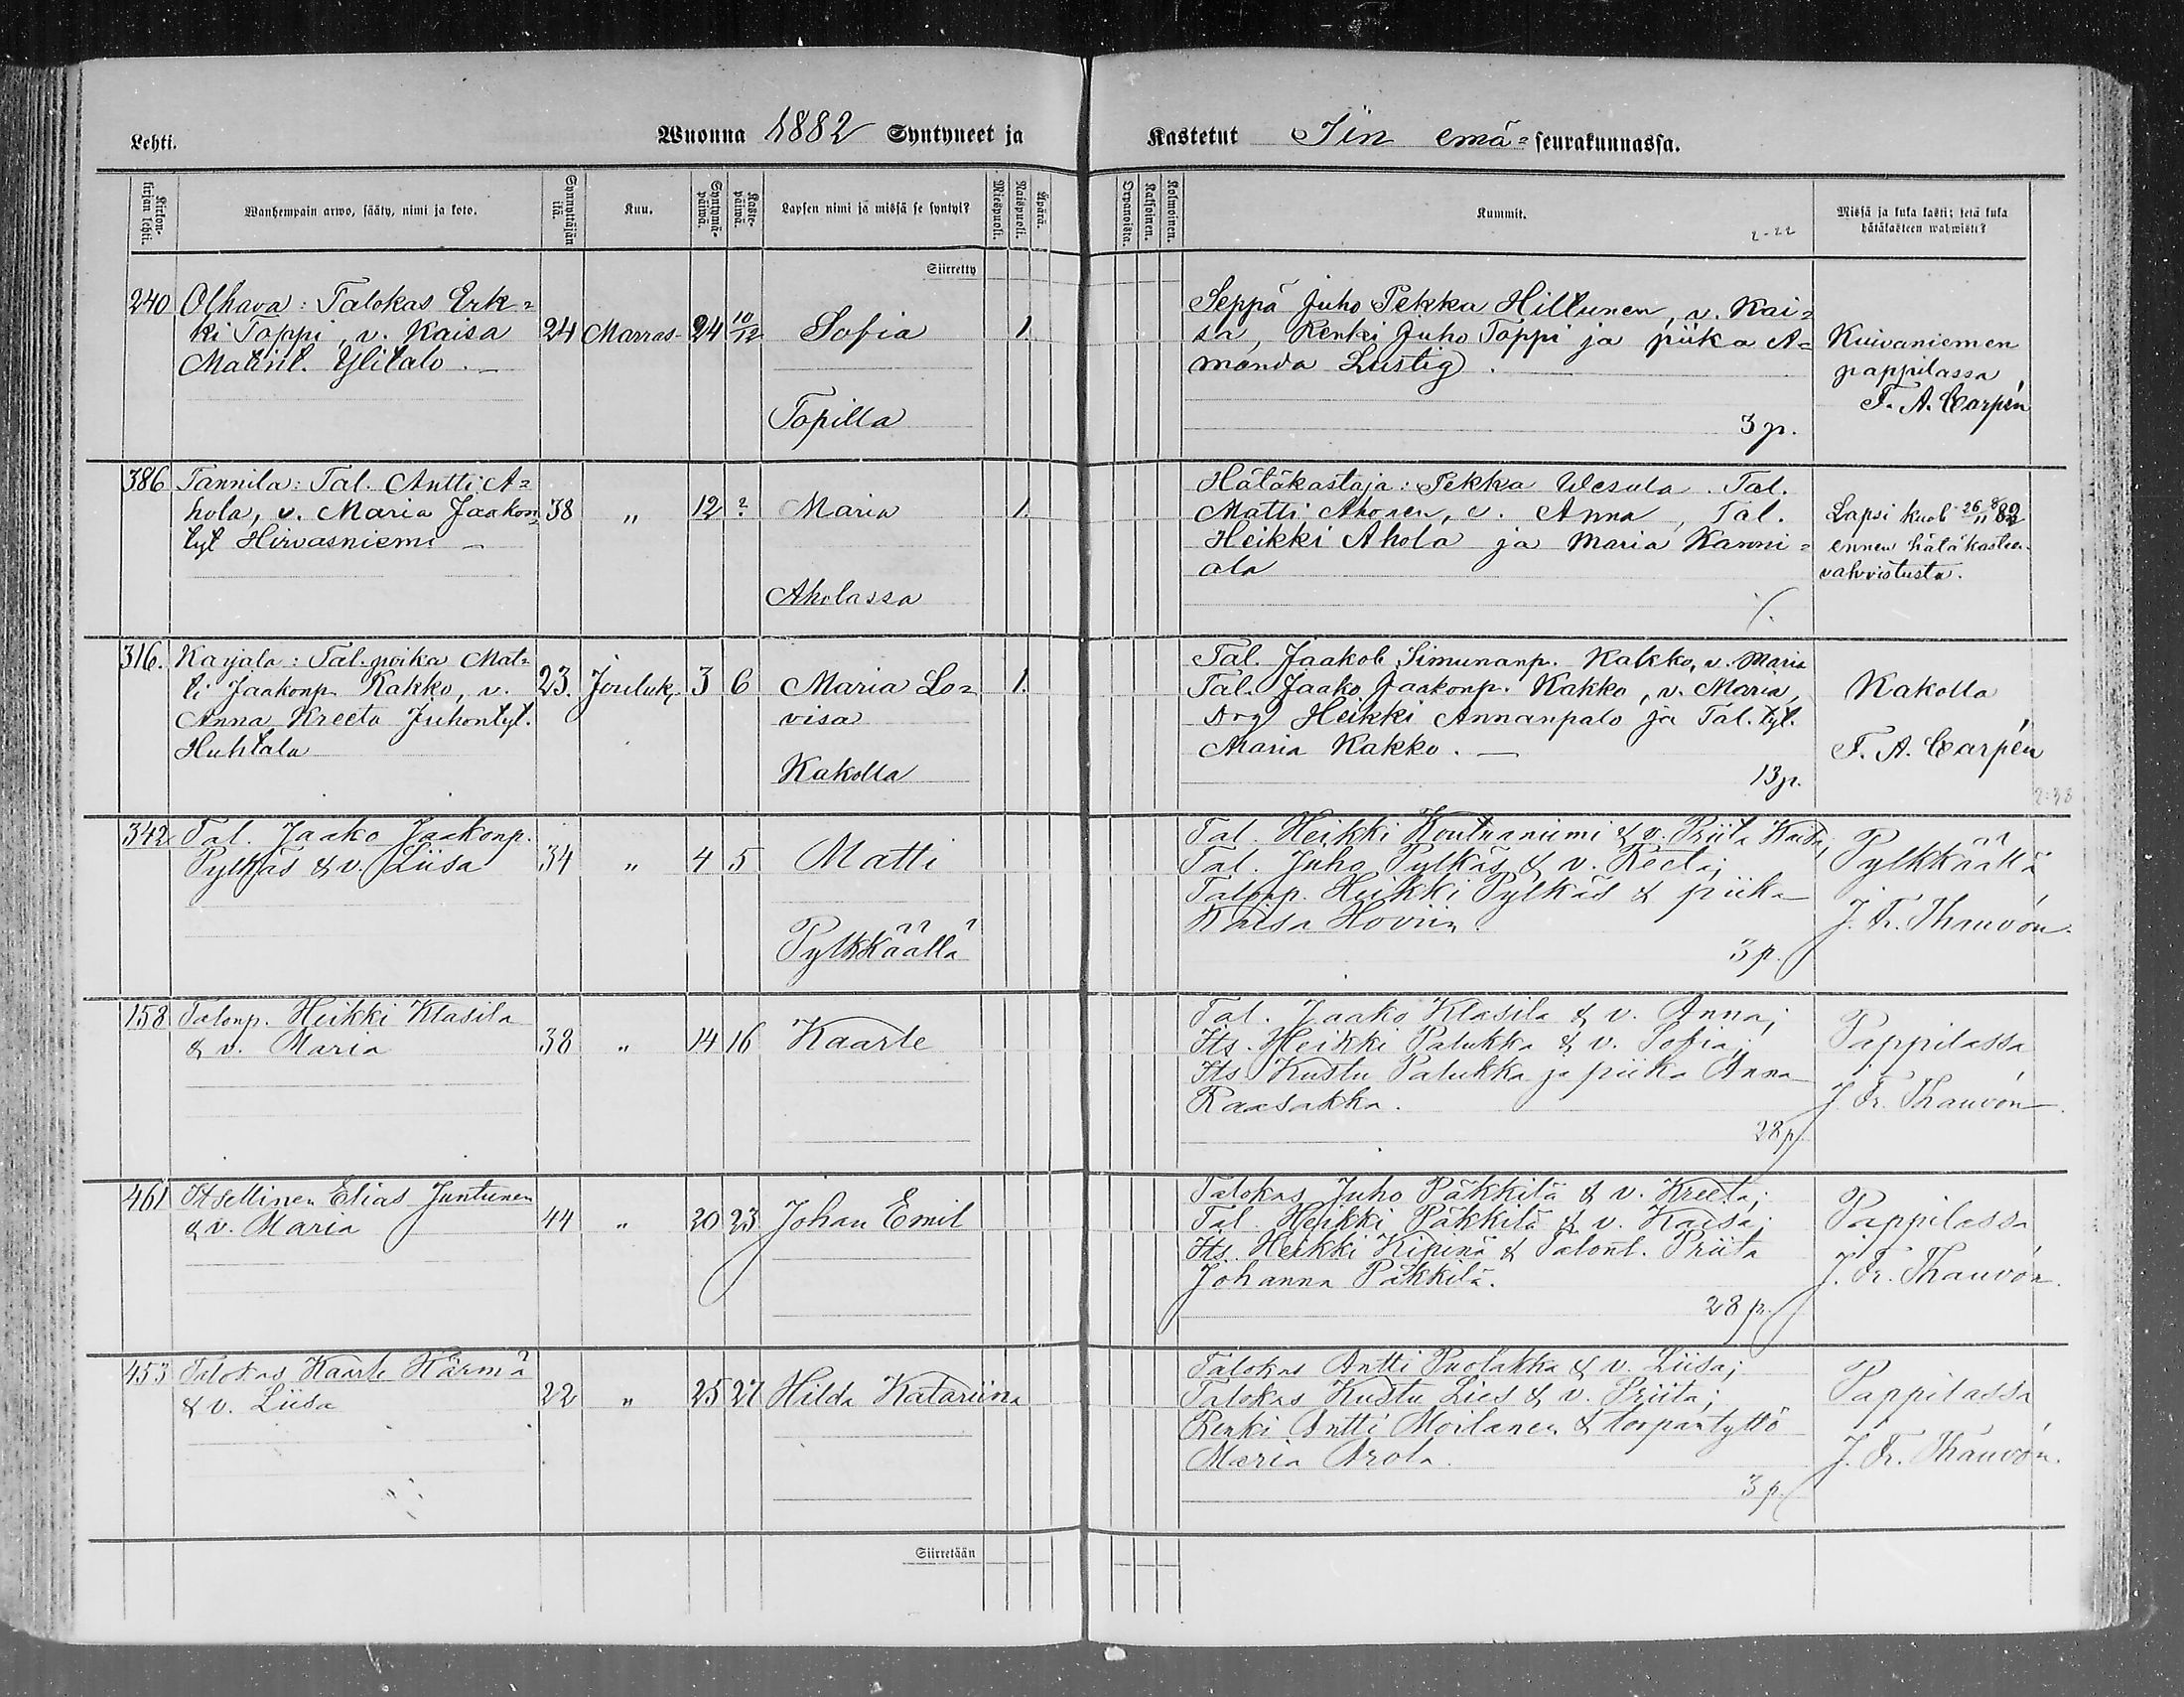 Lehti.
Wuonna 1882 Syntyneet ja
Kastetut Iin emä- seurakunnassa.
Kirkonkirjan lehti.
Wanhempain arwo, sääty, nimi ja koto.
Synnyttäjän ikä.
Kuu.
Syntymäpäiwä.
Kastepäiwä.
Lapsen nimi ja missä se syntyi?
Miespuoli.
Waispuoli.
Äpärä.
Orpanoista.
Kaksoinen.
Kolmoinen.
Kummit.
2-22
Missä ja kuka kasti; sekä kuka
hätäkasteen wahwisti?
Siirretty
240 Olhava: Talokas Erk=
ki Toppi, v. Kaisa 24 Marras- 24 10/12 Sofia 1.
Matint. Ylitalo.
Topilla
Seppä Juho Pekka Hiltunen, v. Kai=
sa, Renki Juho Toppi ja piika A=
manda Lustig.
3 p.
Kuivaniemen
pappilassa
F. A. Carpén
386 Tannila: Tal. Antti A=
hola, v. Maria Jaakon 38 " 12 ? Maria 1.
tyt Hirvasniemi
Aholassa
Hätäkastaja: Pekka Wesula. Tal.
Matti Ahonen, v. Anna, Tal.
Heikki Ahola ja Maria Kanni=
ala
Lapsi kuol 26/11 82
ennen hätäkasteen
vahvistusta.
316. Karjala: Tal. poika Mat=
ti Jaakonp. Kakko, v. 23. Jouluk. 3 6 Maria Lo= 1.
Anna Kreeta Juhontyt. visa
Huhtala
Kakolla
Tal. Jaakob Simunanp. Kakko, v. Maria
Tal. Jaako Jaakonp. Kakko, v. Maria,
Drg Heikki Annanpalo ja Tal. tyt.
Maria Kakko.
13 p.
Kakolla
F. A. Carpén
2:38
342 Tal. Jaako Jaakonp.
Pylkäs & v. Liisa 34 " 4 5 Matti
Pylkkäällä
Tal. Heikki Koutuaniemi & v. Priita Kaisa;
Tal. Juho Pylkäs & v. Reeta;
Talonp. Heikki Pylkäs & piika
Kaisa Hoviin
3 p.
Pylkkäällä
J. Fr. Thauvón.
158 Talonp. Heikki Klasila
& v. Maria 38 " 14 16 Kaarle
Tal. Jaako Klasila & v. Anna;
Its. Heikki Palukka & v. Sofia;
Its. Kustu Palukka ja piika Anna
Raasakka.
28 p.
Pappilassa
J. Fr. Thauvón.
461 Itsellinen Elias Juntunen
& v. Maria 44 " 20 23 Johan Emil
Talokas Juho Päkkilä & v. Kreeta;
Tal. Heikki Päkkilä & v. Kaisa;
Its. Heikki Kipinä & Talont. Priita
Johanna Päkkilä.
28 p.
Pappilassa
J. Fr. Thauvón.
453 Talokas Kaarle Härmä
& v. Liisa 22 " 25 27 Hilda Katariina
Talokas Antti Puolakka & v. Liisa;
Talokas Kustu Lies & v. Priita;
Renki Antti Moilanen & torpantyttö
Maria Arola.
3 p.
Pappilassa
J. Fr. Thauvón.
Siirretään